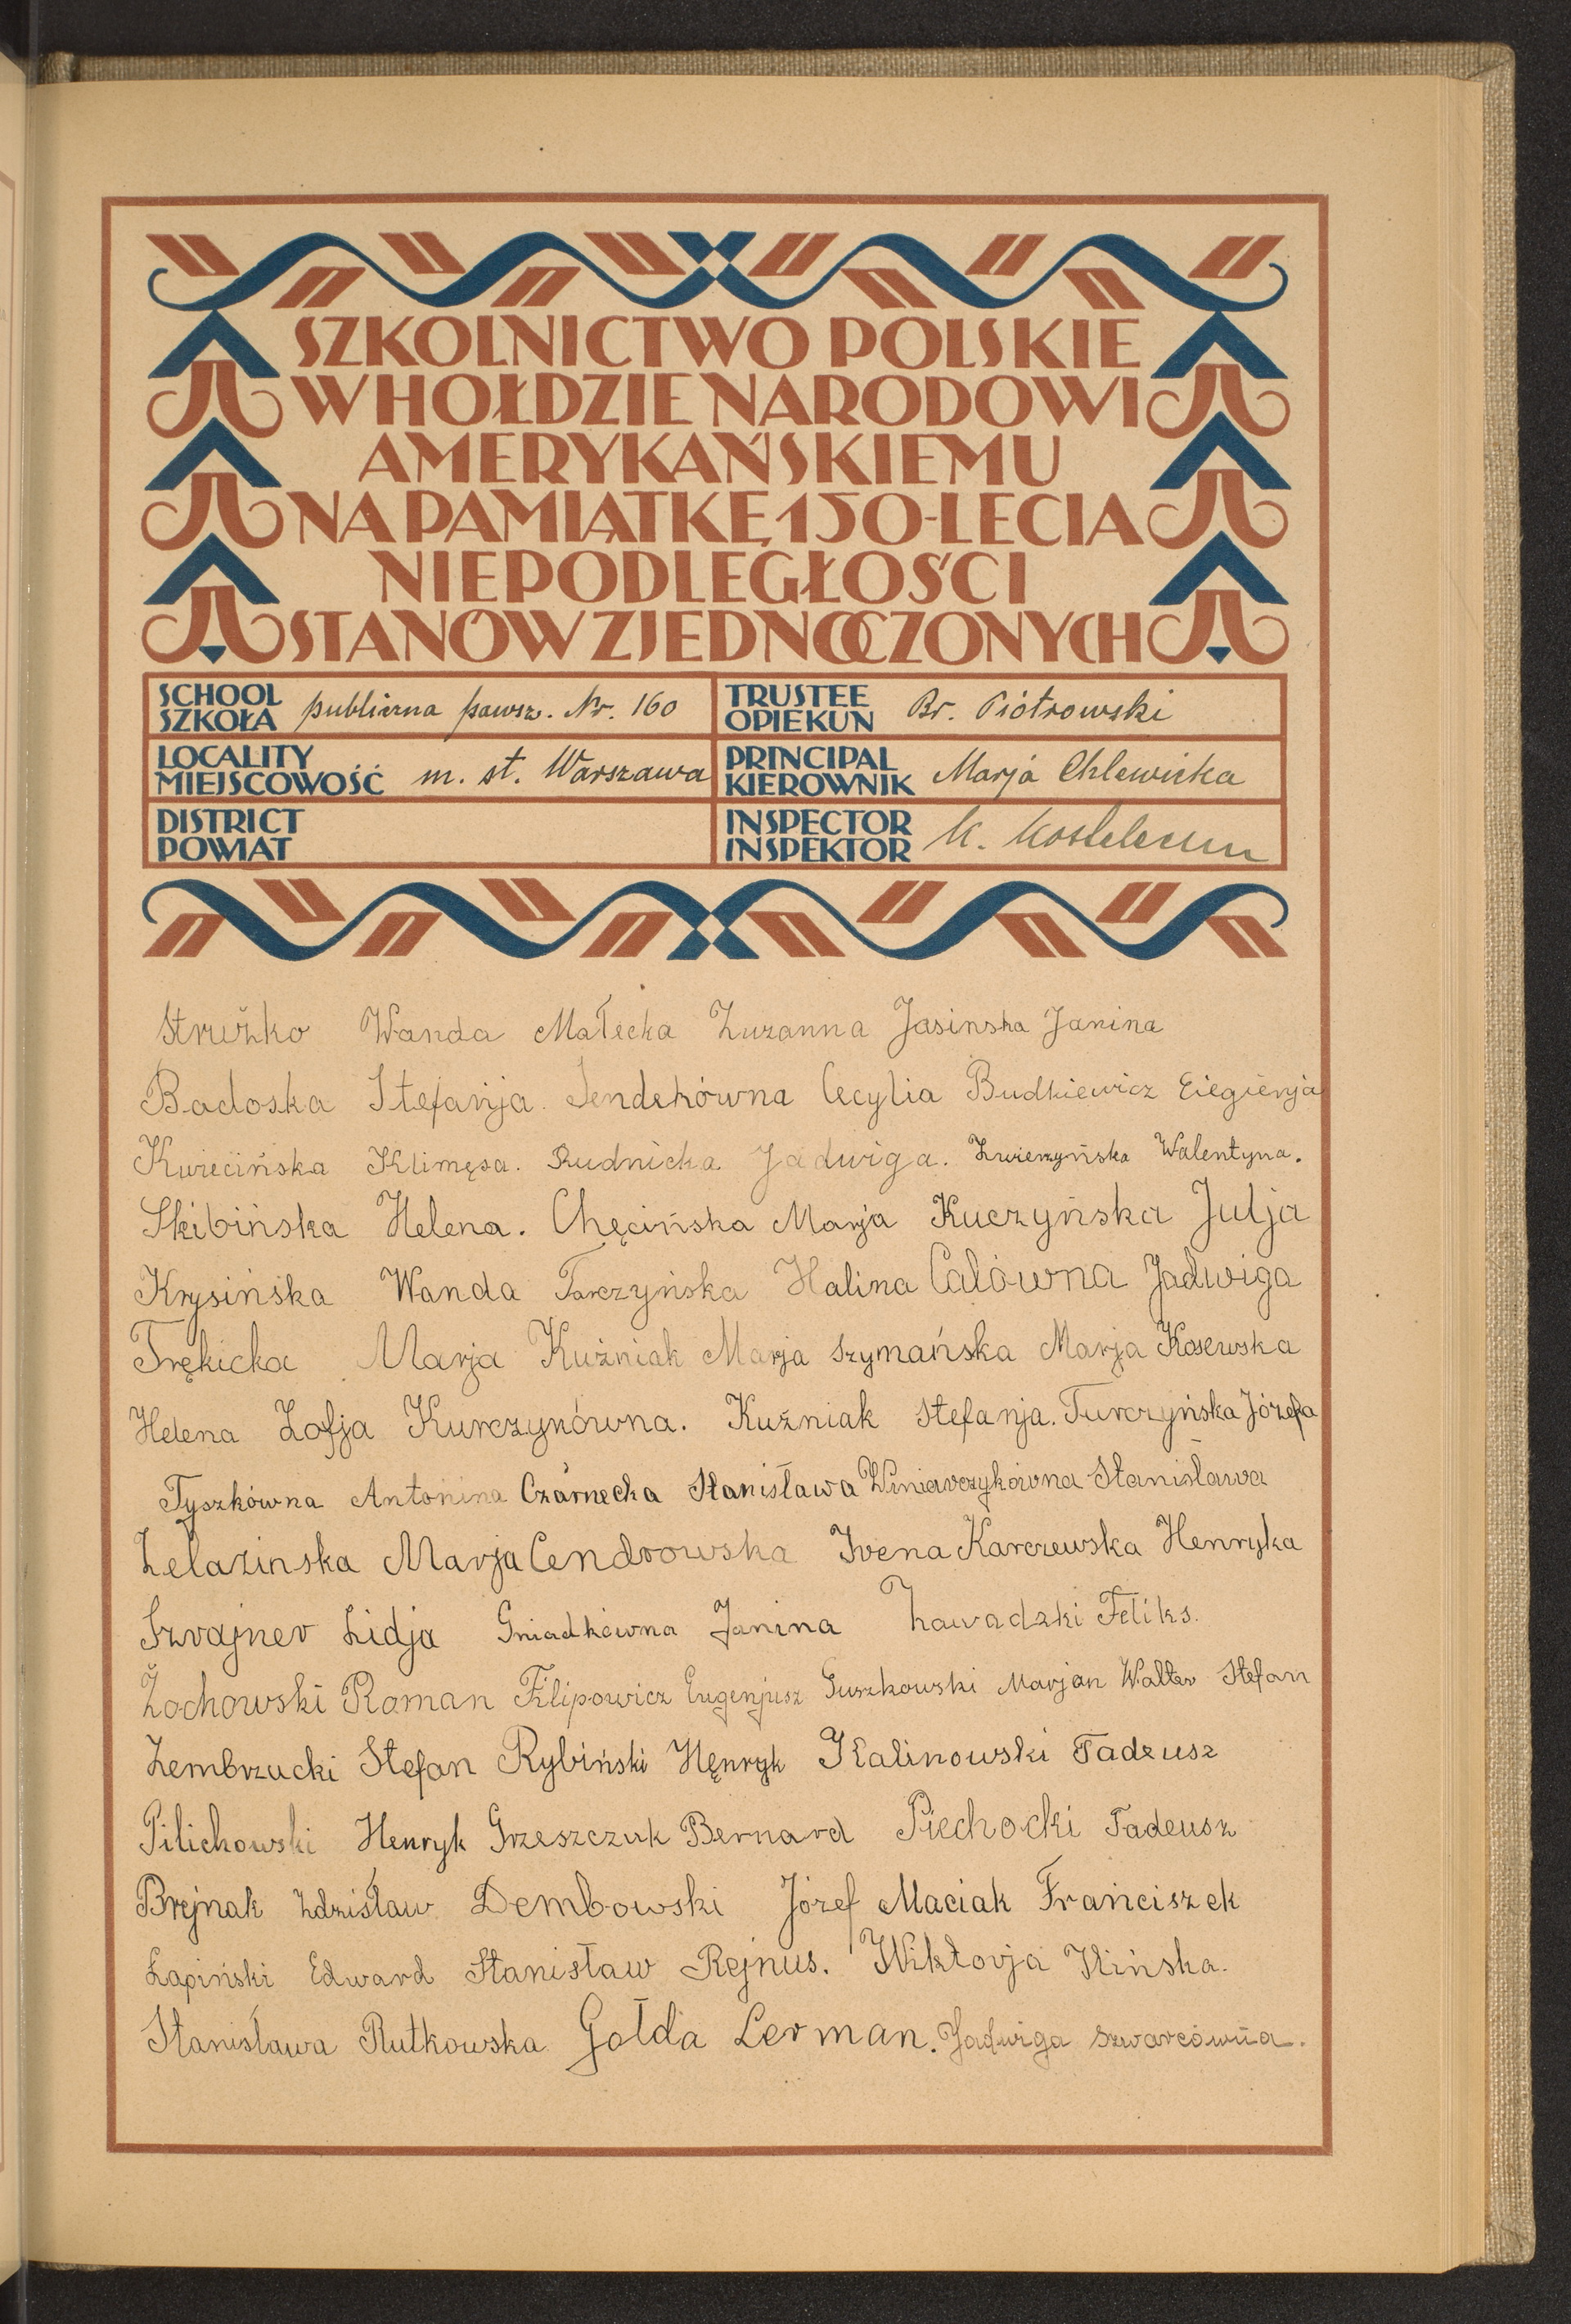 SZKOLNICTWO POLSKIE
W HOŁDZIE NARODOWI
AMERYKAŃSKIEMU
NA PAMIĄTKĘ 150-LECIA
NIEPODLEGŁOŚCI
STANÓW ZJEDNOCZONYCH
SCHOOL
SZKOŁA publiczna powsz. Nr. 160
TRUSTEE
OPIEKUN Br. Piotrowski
LOCALITY
MIEJSCOWOŚĆ m. st. Warszawa
PRINCIPAL
KIEROWNIK Marja Chlewicka
DISTRICT
POWIAT
INSPECTOR
INSPEKTOR K.
Strużko Wanda Małecka Zuzanna Jasinska Janina
Badoska Stefanja Sendekówna Cecylia Budkiewicz Eiegienja
Kwiecińska Klimęsa. Rudnicka Jadwiga. Zwierzyńska Walentyna.
Skibińska Helena. Chęcińska Marja Kuczyńska Julja
Krysińska Wanda Tarczyńska Halina Calówna Jadwiga
Trękicka Marja Kuźniak Marja Szymańska Marja Kosewska
Helena Zofja Kurczynówna. Kuźniak Stefanja. Turczyńska Józefa
Tyszkówna Antonina Czarnecka Stanisława Winiarczykówna Stanisława
Żelazinska Marja Cendrowska Irena Karczewska Henryka
Szrajner Lidja Gniadkówna Janina Zawadzki Feliks.
Żochowski Roman Filipowicz Eugenjusz Guszkowski Marjan Walter Stefan
Zembrzucki Stefan Rybiński Hęnryk Kalinowski Tadeusz
Pilichowski Henryk Grzeszczuk Bernard Piechocki Tadeusz
Brejnak Zdzisław Dembowski Józef Maciak Franciszek
Łapiński Edward Stanisław Rejnus. Wiktorja Ilińska.
Stanisława Rutkowska Gołda Lerman. Jadwiga Szwarcówna.